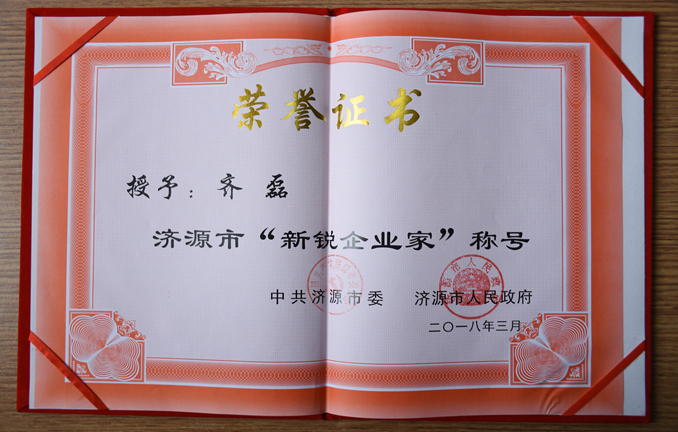 荣誉证书
授予：齐磊
济源市“新锐企业家”称号
中共济源市委 济源市人民政府
二〇一八年三月